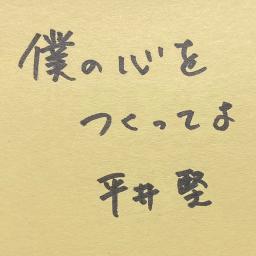 僕の心を
つくってよ
平井 堅